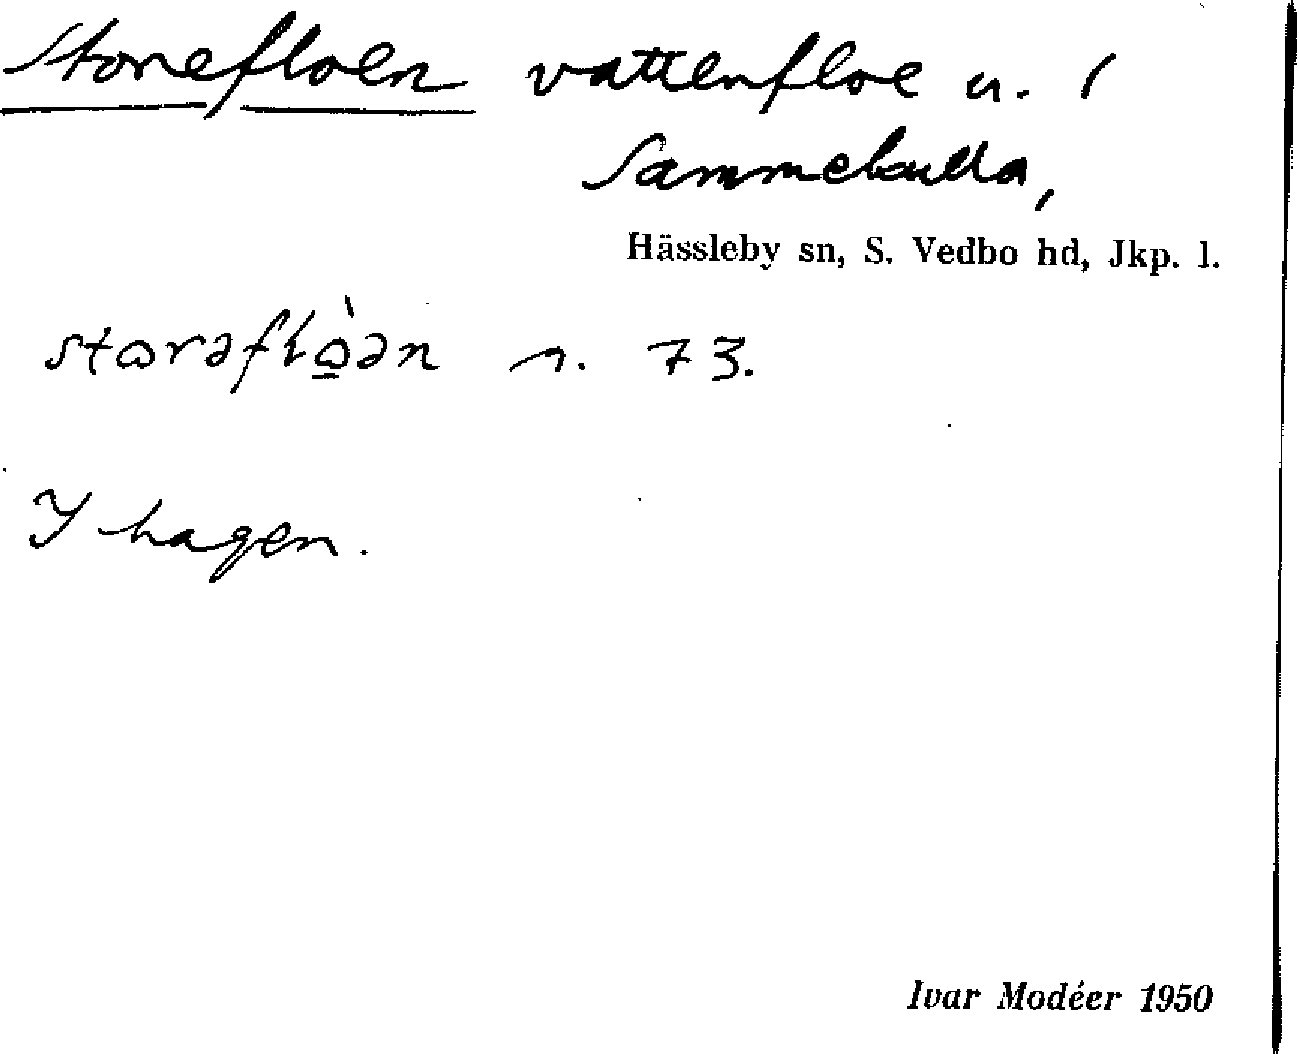 Storefloen vattenfloe u. 1
Sammelbulla,
Hässleby sn, S. Vedbo hd, Jkp. l.
storəflò̠ən n. 73.
I hagen.
Ivar Modéer 1950